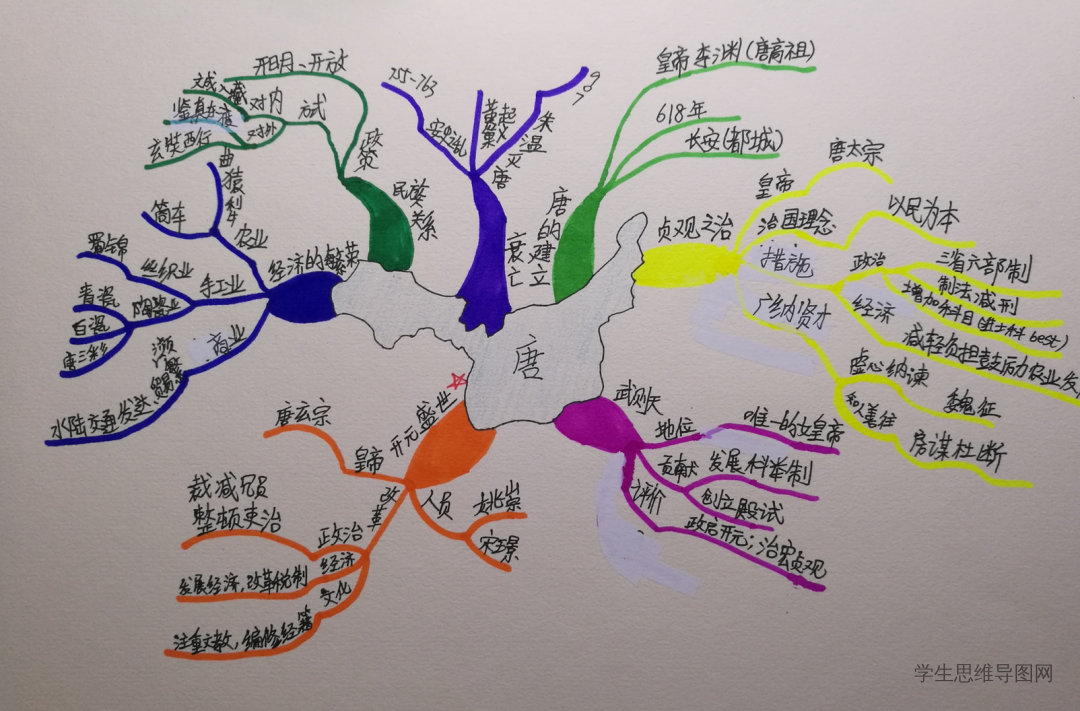 唐
唐的建立
皇帝 李渊(唐高祖)
618年
长安(都城)
贞观之治
皇帝
唐太宗
治国理念
以民为本
措施
政治
三省六部制
制法减刑
增加科目(进士科 best)
经济
减轻负担鼓励农业发
广纳贤才
虚心纳谏
魏征
知人善任
房谋杜断
武则天
地位
唯一的女皇帝
贡献
发展科举制
创立殿试
评价
政启开元;治宏贞观
开元盛世
皇帝
唐玄宗
人员
姚崇
宋璟
改革
政治
裁减冗员
整顿吏治
经济
发展经济,改革税制
文化
注重文教,编修经籍
经济的繁荣
农业
曲辕犁
筒车
手工业
丝织业
蜀锦
陶瓷业
青瓷
白瓷
唐三彩
商业
水陆交通发达
贸易
频繁
民族关系
政策
开明、开放
方式
对内
文成入藏
对外
鉴真东渡
玄奘西行
衰亡
安史之乱
755-763
黄巢起义
朱温灭唐
907
学生思维导图网